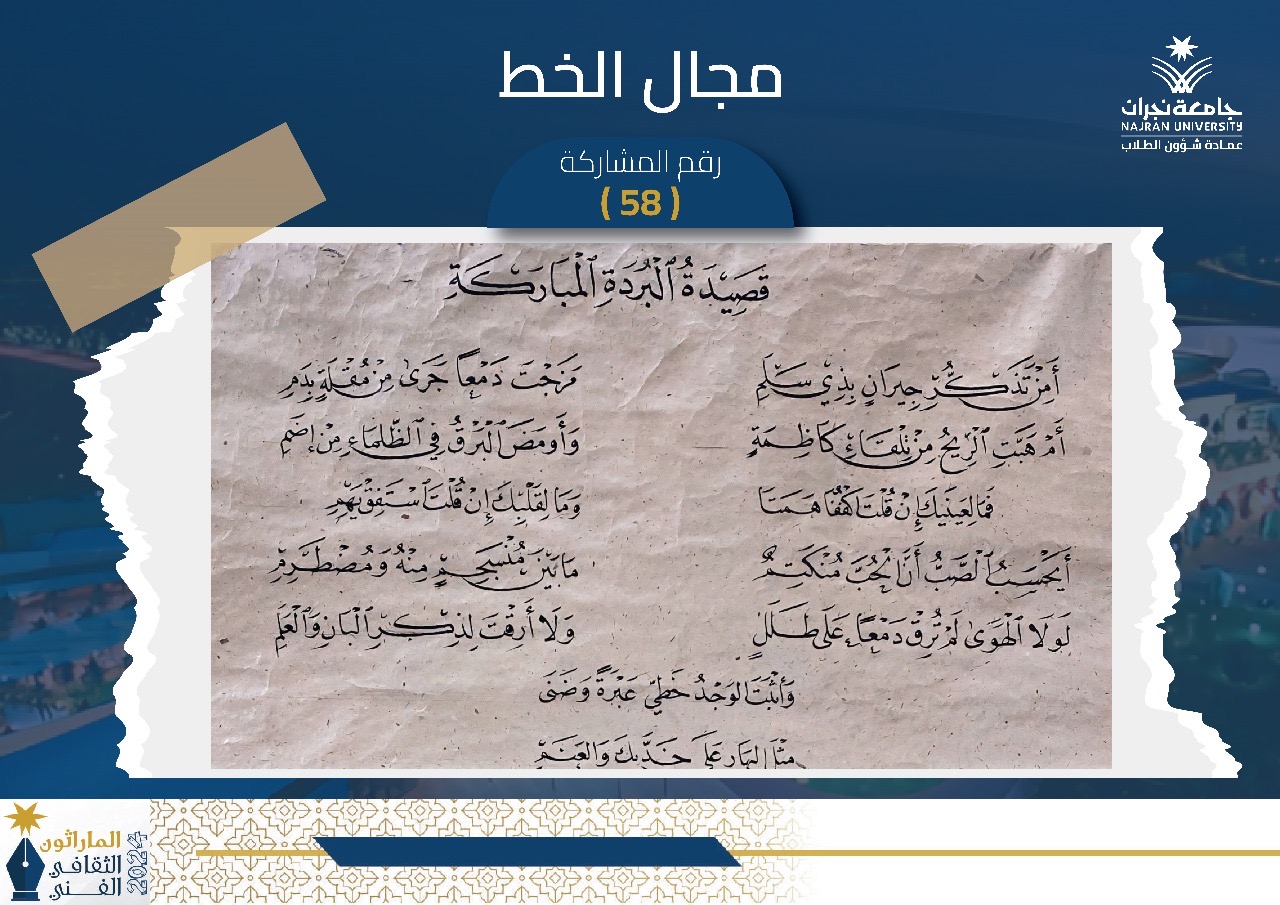 مجال الخط
جامعة نجران
NAJRAN UNIVERSITY
عمادة شؤون الطلاب
رقم المشاركة
( 58 )
قَصِيدَةُ ٱلْبُرْدَةِ ٱلْمُبَارَكَةِ
أَمِنْ تَذَكُّرِ جِيرَانٍ بِذِي سَلَمِ مَزَجْتَ دَمْعاً جَرَىٰ مِنْ مُقْلَةٍ بِدَمِ
أَمْ هَبَّتِ ٱلرِّيحُ مِنْ تِلْقَاءِ كَاظِمَةٍ وَأَوْمَضَ ٱلْبَرْقُ فِي ٱلظَّلْمَاءِ مِنْ إِضَمِ
فَمَا لِعَيْنَيْكَ إِنْ قُلْتَ ٱكْفُفَا هَمَتَا وَمَا لِقَلْبِكَ إِنْ قُلْتَ ٱسْتَفِقْ يَهِمِ
أَيَحْسَبُ ٱلصَّبُّ أَنَّ ٱلْحُبَّ مُنْكَتِمٌ مَا بَيْنَ مُنْسَجِمٍ مِنْهُ وَمُضْطَرِمِ
لَوْلَا ٱلْهَوَىٰ لَمْ تُرِقْ دَمْعاً عَلَىٰ طَلَلٍ وَلَا أَرِقْتَ لِذِكْرِ ٱلْبَانِ وَٱلْعَلَمِ
وَأَثْبَتَ ٱلْوَجْدُ خَطَّيْ عَبْرَةً وَضَنَىٰ
مِثْلَ ٱلْبَهَارِ عَلَىٰ خَدَّيْكَ وَٱلْعَنَمِ
الماراثون
الثقافي
الفني
2024